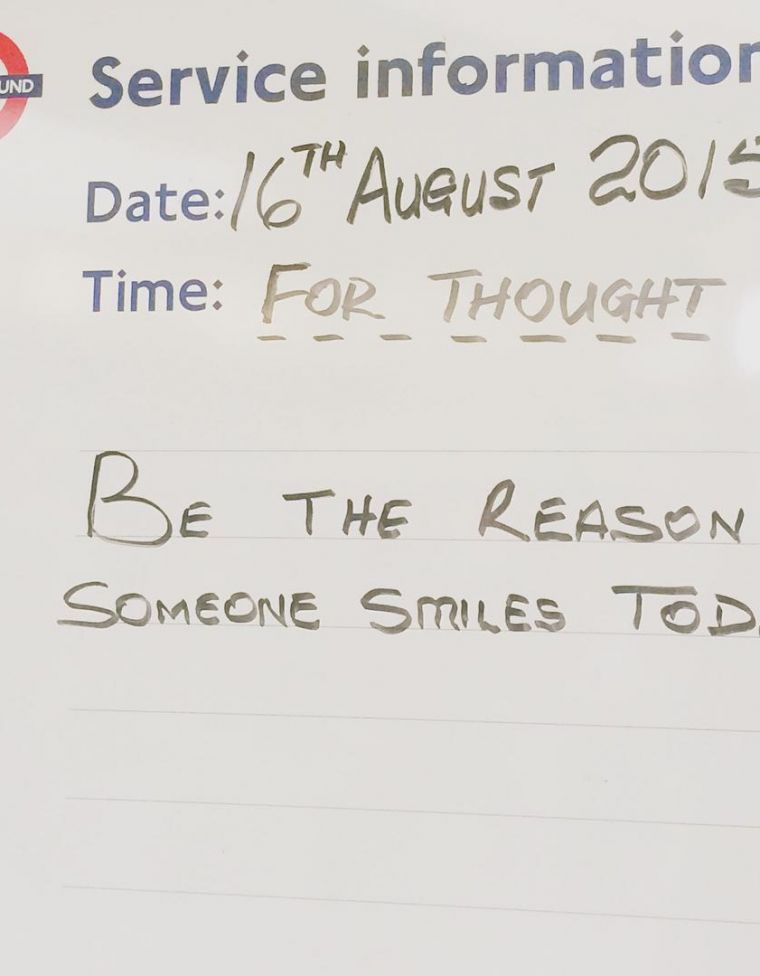 UND
Service information
Date: 16TH AUGUST 2015
Time: FOR THOUGHT
BE THE REASON
SOMEONE SMILES TOD